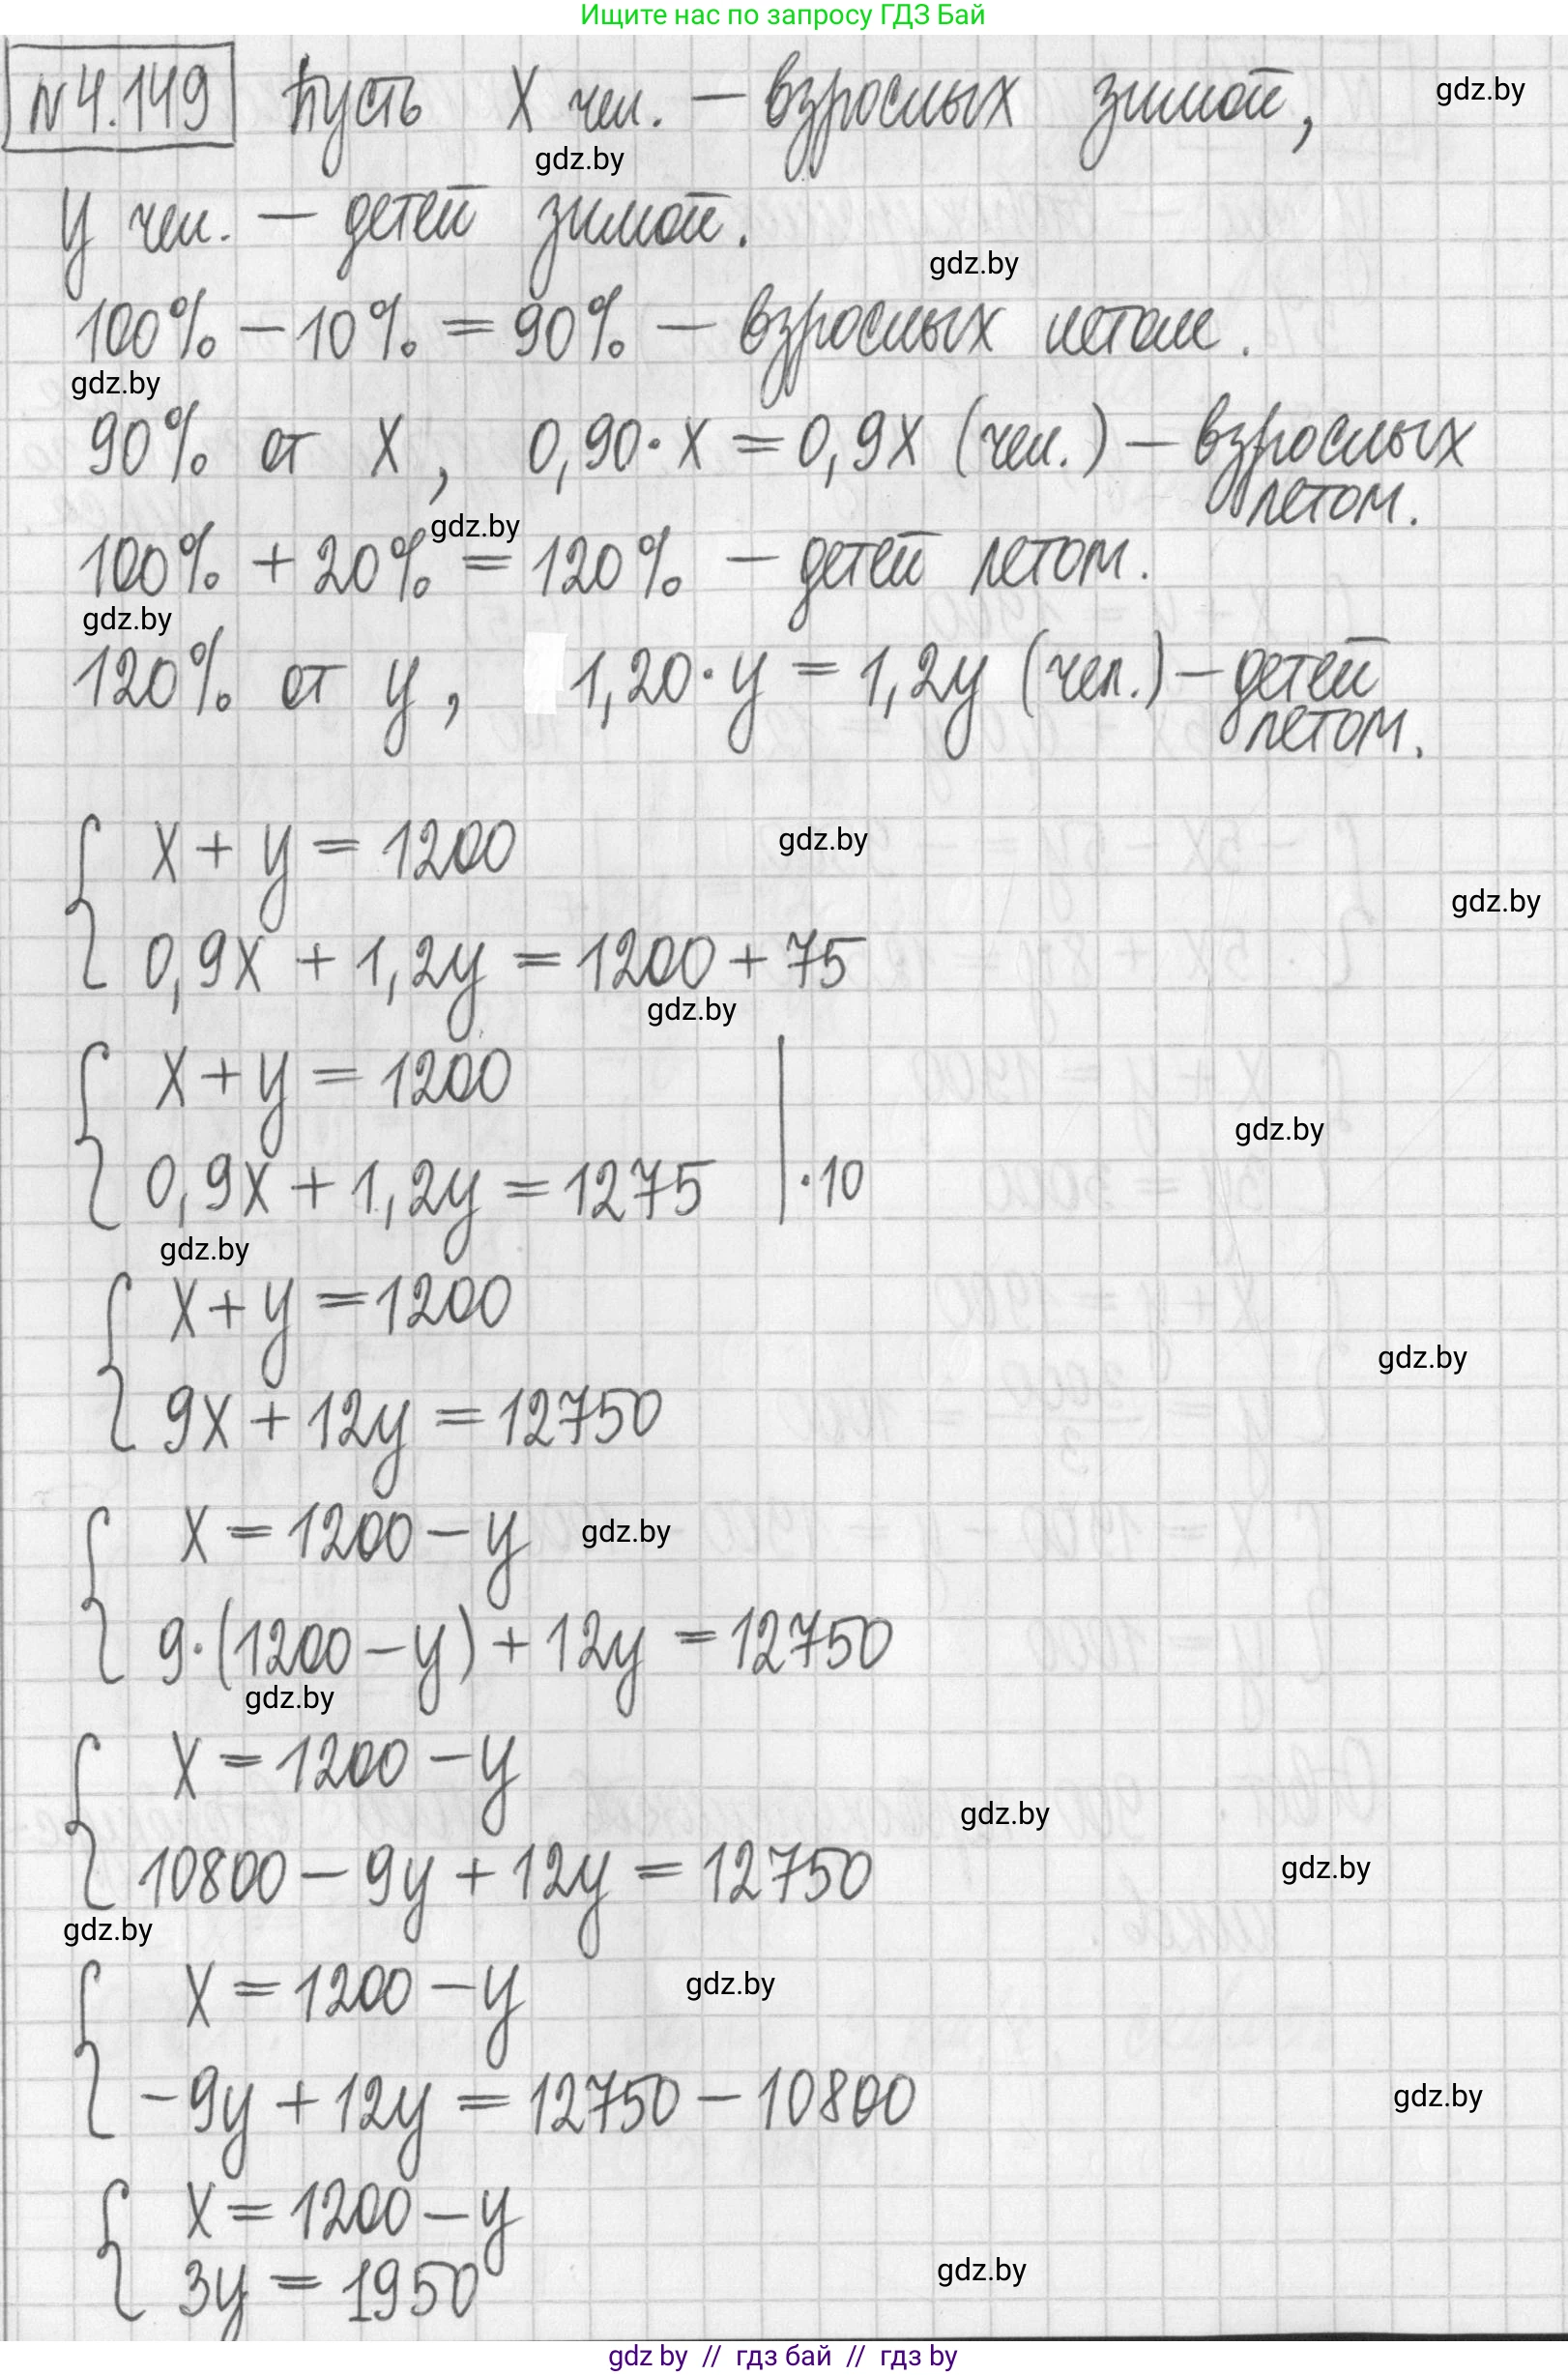 Ищите нас по запросу ГДЗ Бай
№4.149 Пусть x чел. – взрослых зимой,
gdz.by
gdz.by
y чел. – детей зимой.
gdz.by
100% – 10% = 90% – взрослых летом.
gdz.by
90% от x, 0,90·x = 0,9x (чел.) – взрослых
летом.
gdz.by
100% + 20% = 120% – детей летом.
gdz.by
120% от y, 1,20·y = 1,2y (чел.) – детей
летом.
{ x + y = 1200
gdz.by
gdz.by
0,9x + 1,2y = 1200 + 75
gdz.by
{ x + y = 1200
gdz.by
0,9x + 1,2y = 1275 | ·10
gdz.by
{ x + y = 1200
gdz.by
9x + 12y = 12750
{ x = 1200 – y
gdz.by
9·(1200 – y) + 12y = 12750
gdz.by
{ x = 1200 – y
gdz.by
10800 – 9y + 12y = 12750
gdz.by
gdz.by
{ x = 1200 – y
gdz.by
–9y + 12y = 12750 – 10800
gdz.by
{ x = 1200 – y
3y = 1950
gdz.by
gdz by // гдз бай // гдз by